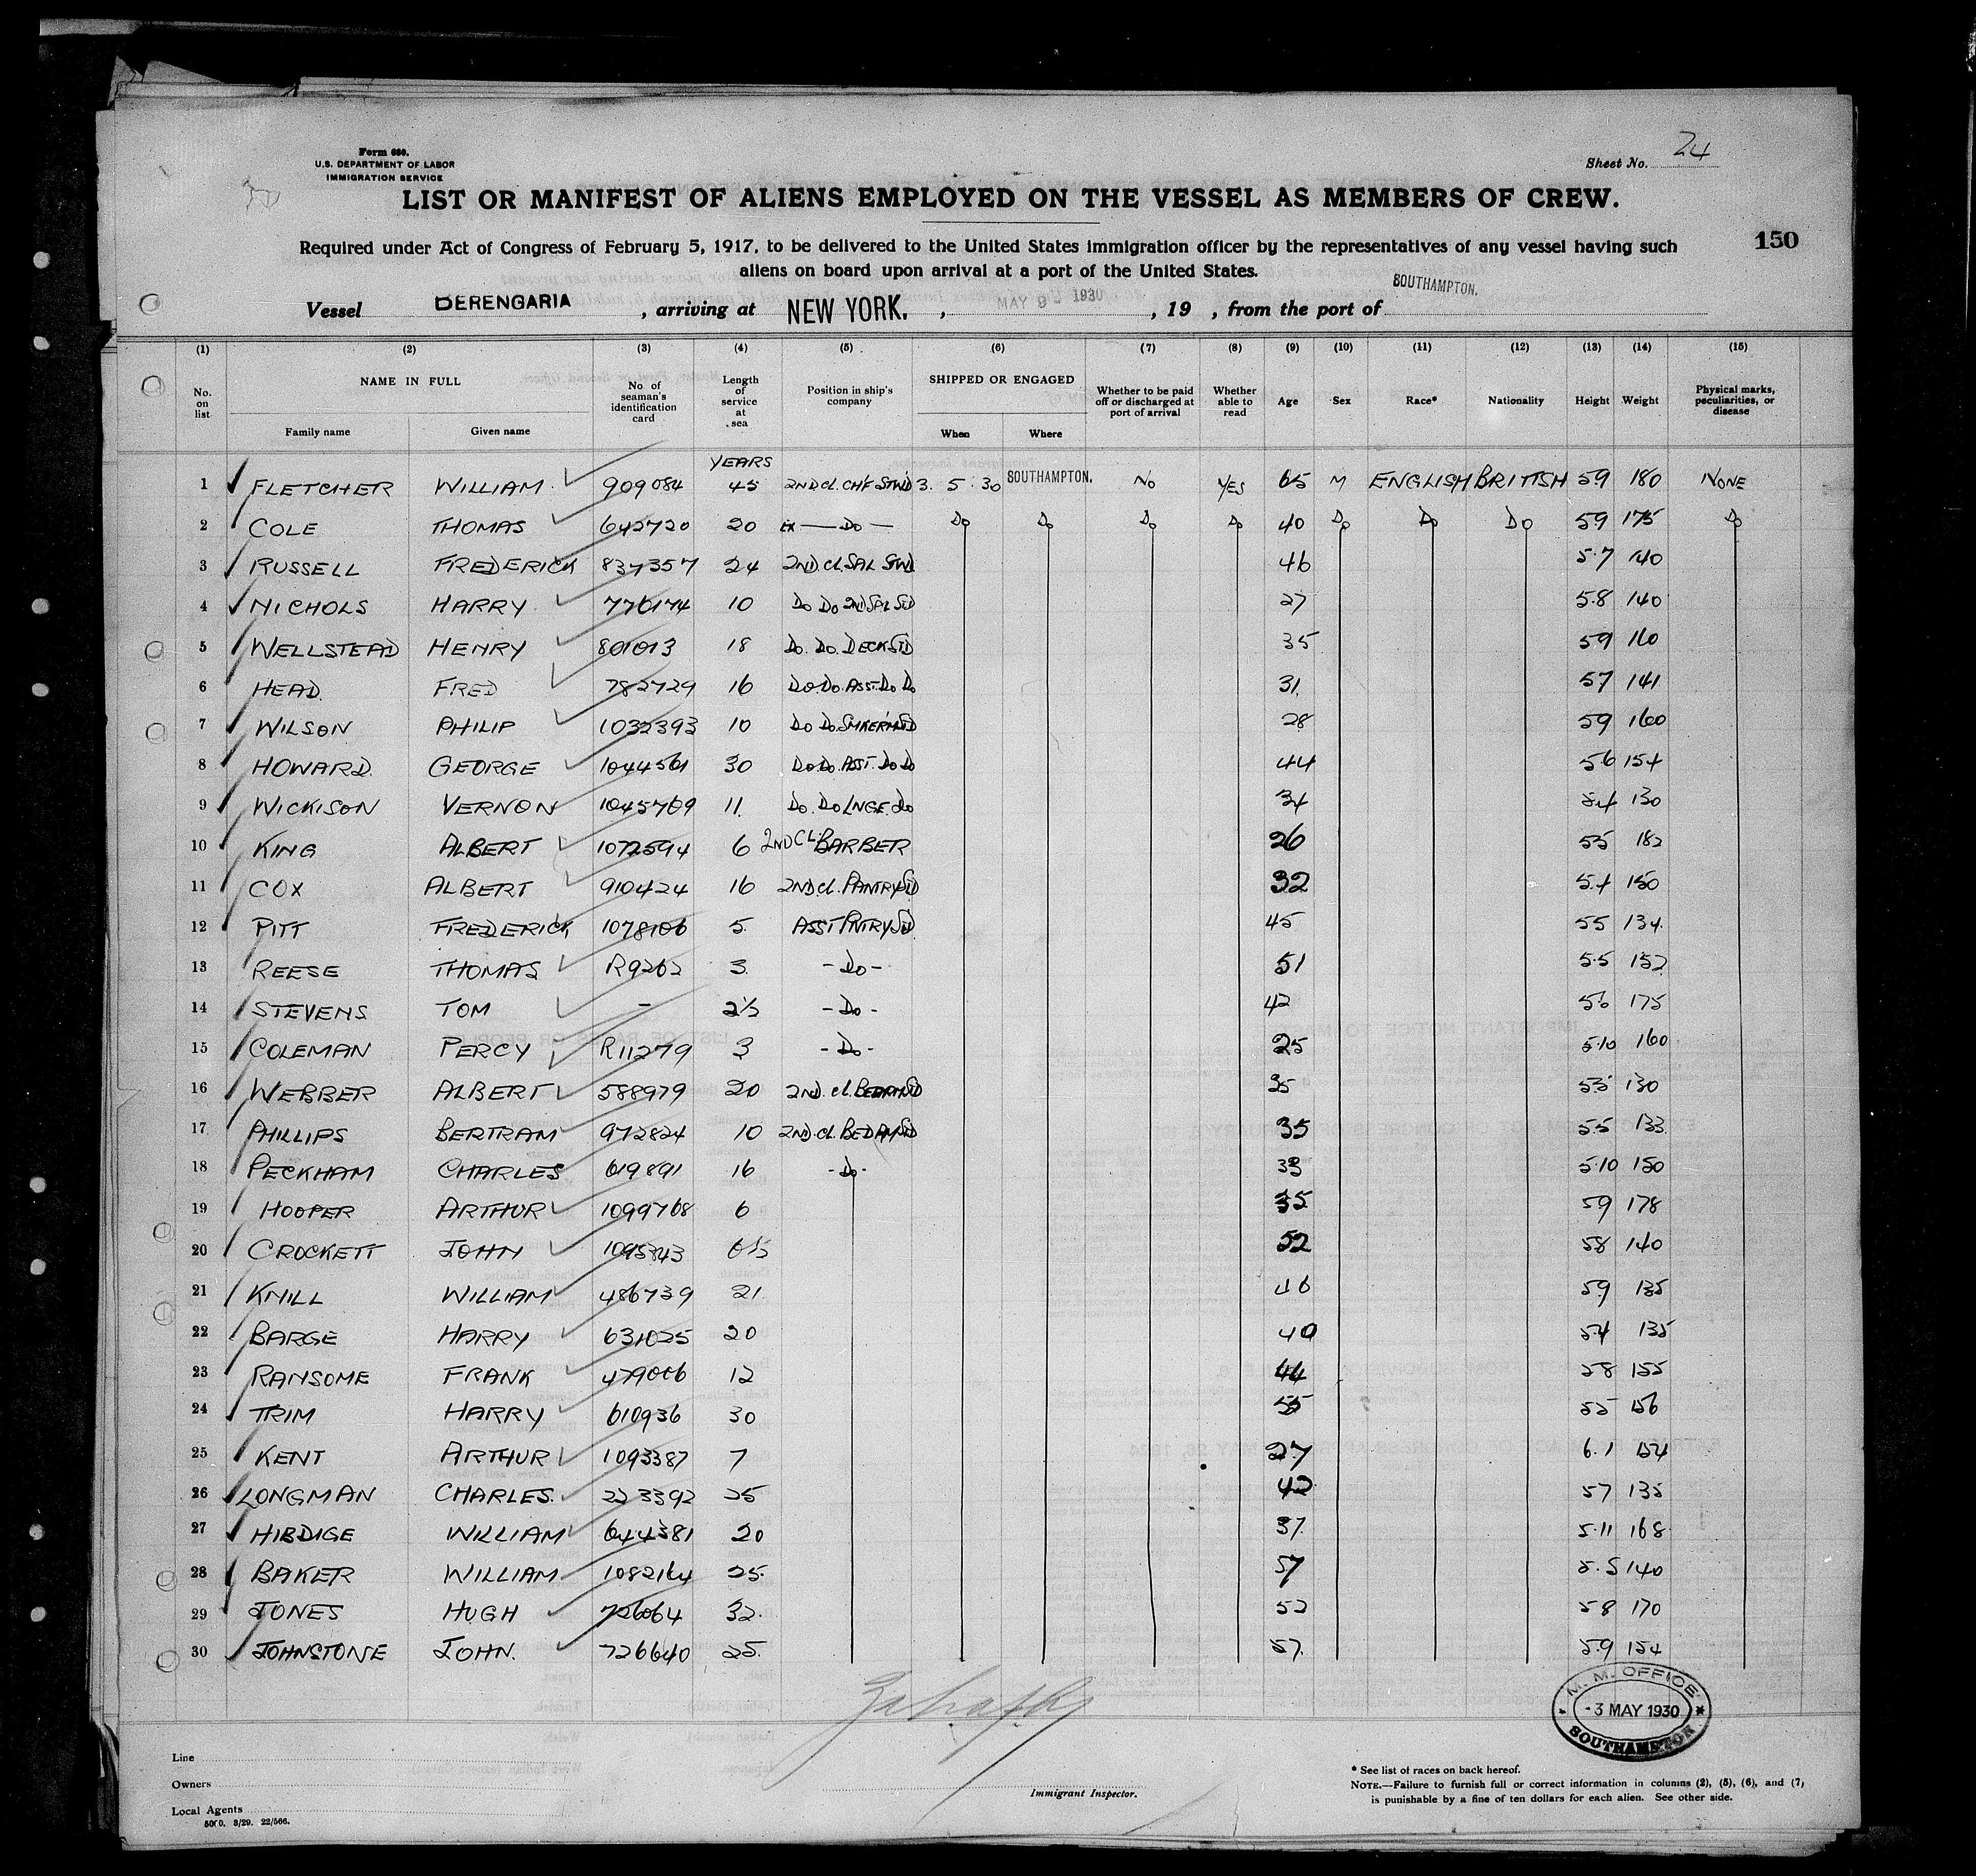 Form 680.
U.S. DEPARTMENT OF LABOR
IMMIGRATION SERVICE
Sheet No. 24
LIST OR MANIFEST OF ALIENS EMPLOYED ON THE VESSEL AS MEMBERS OF CREW.
150
Required under Act of Congress of February 5, 1917, to be delivered to the United States immigration officer by the representatives of any vessel having such
aliens on board upon arrival at a port of the United States.
Vessel BERENGARIA, arriving at NEW YORK. , MAY 9 - 1930, 19 , from the port of SOUTHAMPTON.
(1) (2) (3) (4) (5) (6) (7) (8) (9) (10) (11) (12) (13) (14) (15)
No. on list NAME IN FULL Family name Given name No. of seaman's identification card Length of service at sea Position in ship's company SHIPPED OR ENGAGED When Where Whether to be paid off or discharged at port of arrival Whether able to read Age Sex Race* Nationality Height Weight Physical marks, peculiarities, or disease
YEARS
1 FLETCHER WILLIAM 909084 45 2ND CL. CHF STWD 3. 5. 30 SOUTHAMPTON. NO YES 65 M ENGLISH BRITISH 59 180 NONE
2 COLE THOMAS 642720 20 — Do — Do Do Do Do 40 Do Do Do 59 175 Do
3 RUSSELL FREDERICK 837357 24 2ND CL. SAL STWD 46 5.7 140
4 NICHOLS HARRY 776174 10 Do Do 2ND SAL STD 27 5.8 140
5 WELLSTEAD HENRY 801013 18 Do. Do. DECK STD 35 59 160
6 HEAD FRED 782729 16 Do. Do. ASST. Do Do 31 57 141
7 WILSON PHILIP 1032393 10 Do Do 28 59 160
8 HOWARD GEORGE 1044561 30 Do. Do. ASST. Do Do 44 56 154
9 WICKISON VERNON 1045709 11 Do. Do LNGE. do 34 54 130
10 KING ALBERT 1072594 6 2ND CL. BARBER 26 55 182
11 COX ALBERT 910424 16 2ND CL. PANTRY STD 32 5.4 150
12 PITT FREDERICK 1078106 5 ASST PNTRY STD 45 55 134
13 REESE THOMAS R9262 3 - Do - 51 5.5 152
14 STEVENS TOM - 2½ - Do - 42 56 175
15 COLEMAN PERCY R11279 3 - Do - 25 5.10 160
16 WEBBER ALBERT 588979 20 2ND. CL. BEDRM STD 35 55 130
17 PHILLIPS BERTRAM 972824 10 2ND. CL. BEDRM STD 35 5.5 133
18 PECKHAM CHARLES 619891 16 - Do - 33 5.10 150
19 HOOPER ARTHUR 1099768 6 35 59 178
20 CROCKETT JOHN 1095843 6½ 52 58 140
21 KNILL WILLIAM 486739 21 46 59 135
22 BARGE HARRY 631025 20 40 54 135
23 RANSOME FRANK 479006 12 44 58 155
24 TRIM HARRY 610936 30 55 55 156
25 KENT ARTHUR 1093387 7 27 6.1 154
26 LONGMAN CHARLES. 223392 25 42 57 135
27 HIBDIGE WILLIAM 644381 20 37 5.11 168
28 BAKER WILLIAM 1082164 25 57 5.5 140
29 JONES HUGH 726064 32 52 58 170
30 JOHNSTONE JOHN. 726640 25 57 5.9 154
M. M. OFFICE
- 3 MAY 1930
SOUTHAMPTON
Line
Owners
Local Agents
5000. 3/29. 22/566.
Immigrant Inspector.
* See list of races on back hereof.
NOTE.—Failure to furnish full or correct information in columns (2), (5), (6), and (7)
is punishable by a fine of ten dollars for each alien. See other side.